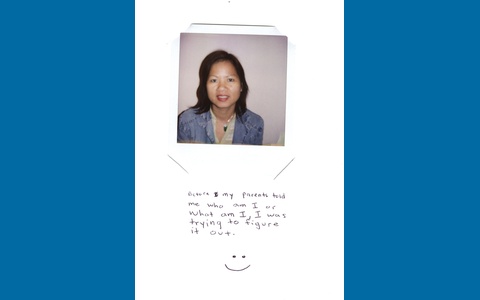 before my parents told
me who am I or
What am I, I was
trying to figure
it out.